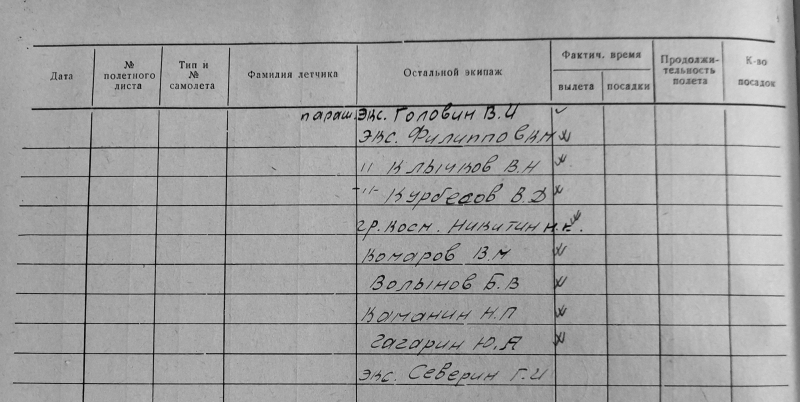 Дата № полетного листа Тип и № самолета Фамилия летчика Остальной экипаж Фактич. время вылета посадки Продолжи-тельность полета К-во посадок
параш. Экс. Головин В.И
Экс. Филиппов К.Н
" Клычков В.Н
-"- Курбесов В.Д
гр. косм. Никитин Н.К.
Комаров В.М
Волынов Б.В
Каманин Н.П
Гагарин Ю.А
Экс. Северин Г.И